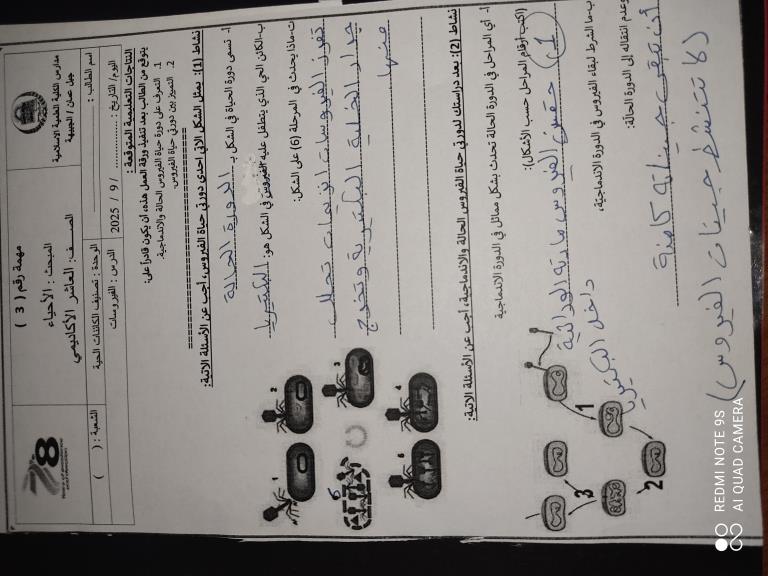 مدارس الكلية العلمية الاسلامية
جبل عمان / الجبيهة
مهمة رقم ( 3 )
المبحث : الأحياء
الصف: العاشر الأكاديمي
78
اسم الطالب :
الوحدة : تصنيف الكائنات الحية
الشعبة : ( )
اليوم/ التاريخ : .............. / 9 / 2025
الدرس : الفيروسات
النتاجات التعليمية المتوقعة :
يتوقع من الطالب بعد تنفيذ ورقة العمل هذه، ان يكون قادراً على:
1. التعرف على دورة حياة الفيروس الحالة والاندماجية.
2. التمييز بين دورتي حياة الفيروس.
================================
نشاط (1): يمثل الشكل الاتي احدى دورتي حياة الفيروس، اجب عن الأسئلة الاتية:
أ- تسمى دورة الحياة في الشكل بـ الدورة الحالة
ب-الكائن الحي الذي يتطفل عليه الفيروس في الشكل هو: البكتيريا
ت-ماذا يحدث في المرحلة (6) على الشكل:
تفرز الفيروسات انزيمات تحلل
جدار الخلية البكتيرية وتخرج
منها
1
2
3
4
5
6
نشاط (2): بعد دراستك لدورتي حياة الفيروس الحالة والاندماجية، اجب عن الأسئلة الاتية:
أ- أي المراحل في الدورة الحالة تحدث بشكل مماثل في الدورة الاندماجية
(اكتب أرقام المراحل حسب الأشكال):
1 حقن الفيروس مادته الوراثية
داخل البكتيريا
1
2
3
ب-ما الشرط لبقاء الفيروس في الدورة الاندماجية،
وعدم انتقاله إلى الدورة الحالة:
أن تبقى جيناته كامنة
(لا تتنشط جينات الفيروس)
REDMI NOTE 9S
AI QUAD CAMERA